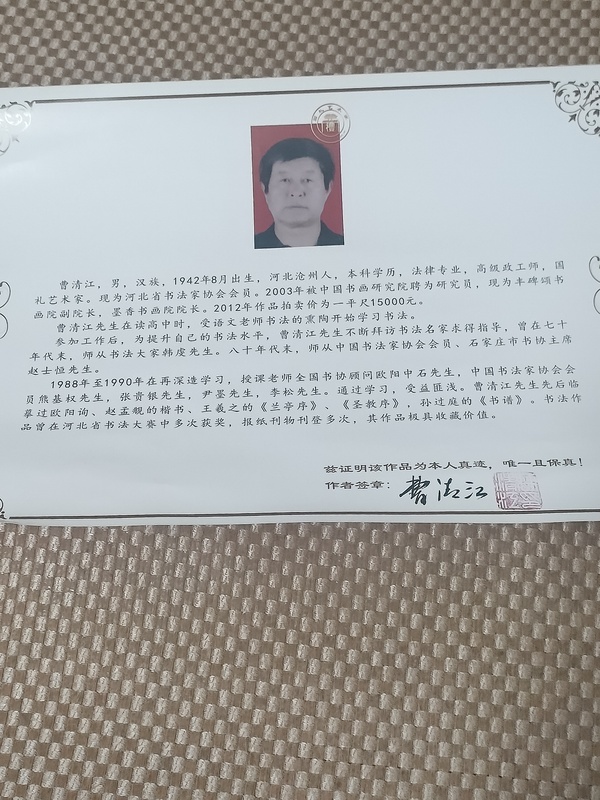 曹清江，男，汉族，1942年8月出生，河北沧州人，本科学历，法律专业，高级政工师，国
礼艺术家。现为河北省书法家协会会员。2003年被中国书画研究院聘为研究员，现为丰碑颂书
画院副院长，墨香书画院院长。2012年作品拍卖价为一平尺15000元。
曹清江先生在读高中时，受语文老师书法的熏陶开始学习书法。
参加工作后，为提升自己的书法水平，曹清江先生不断拜访书法名家求得指导，曾在七十
年代末，师从书法大家韩虔先生。八十年代末，师从中国书法家协会会员、石家庄市书协主席
赵士恒先生。
1988年至1990年在再深造学习，授课老师全国书协顾问欧阳中石先生，中国书法家协会会
员熊基权先生，张贵银先生，尹墨先生，李松先生。通过学习，受益匪浅。曹清江先生先后临
摹过欧阳询、赵孟覜的楷书、王羲之的《兰亭序》、《圣教序》，孙过庭的《书谱》。书法作
品曾在河北省书法大赛中多次获奖，报纸刊物刊登多次，其作品极具收藏价值。
兹证明该作品为本人真迹，唯一且保真！
作者签章：曹清江